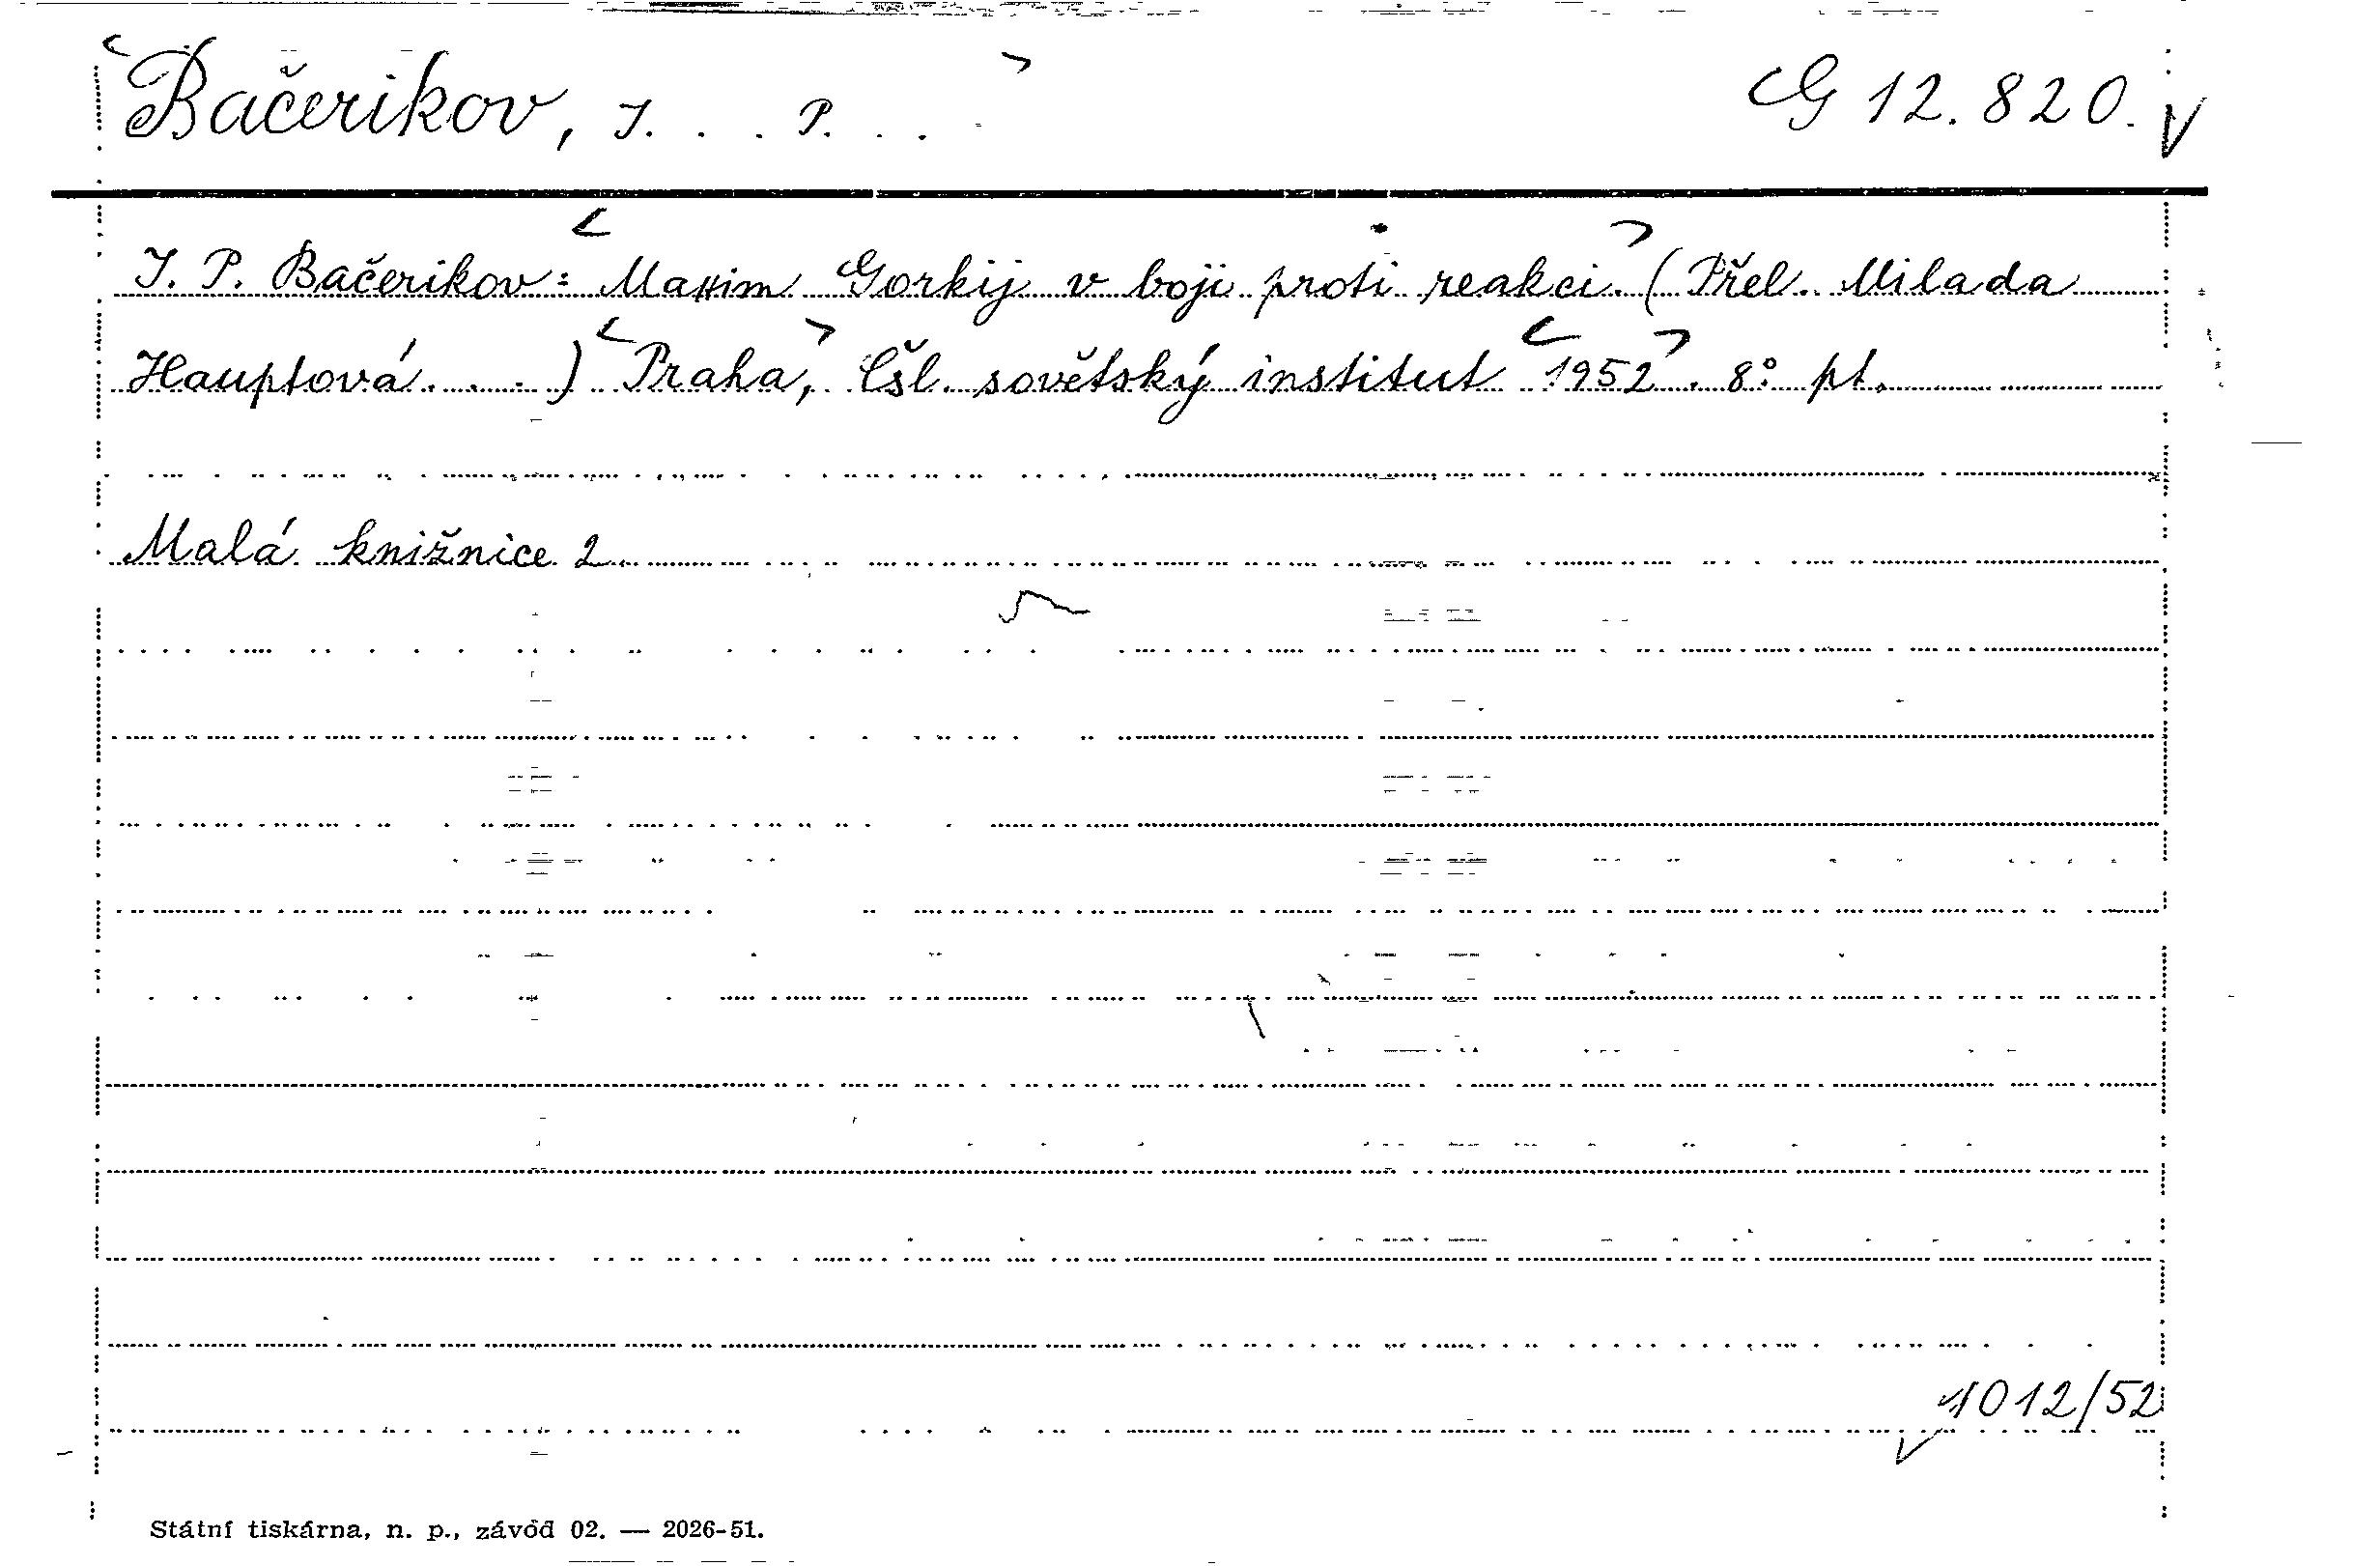 Bačerikov, I. . . P. . . G 12.820.
I. P. Bačerikov: Maxim Gorkij v boji proti reakci. (Přel. Milada
Hauptová. . .) Praha, Čsl. sovětský institut 1952. 8° pt.
Malá knižnice 2.
1012/52
Státní tiskárna, n. p., závod 02. — 2026-51.